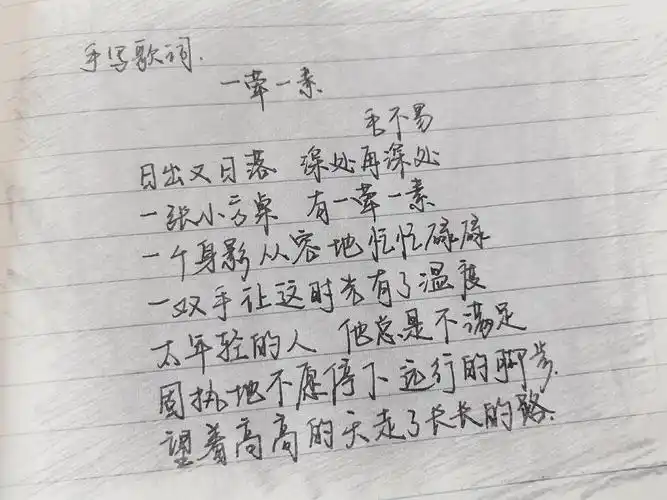 手写歌词.
一荤一素
毛不易
日出又日落 深处再深处
一张小方桌 有一荤一素
一个身影从容地忙忙碌碌
一双手让这时光有了温度
太年轻的人 他总是不满足
固执地不愿停下 远行的脚步
望着高高的天走了长长的路